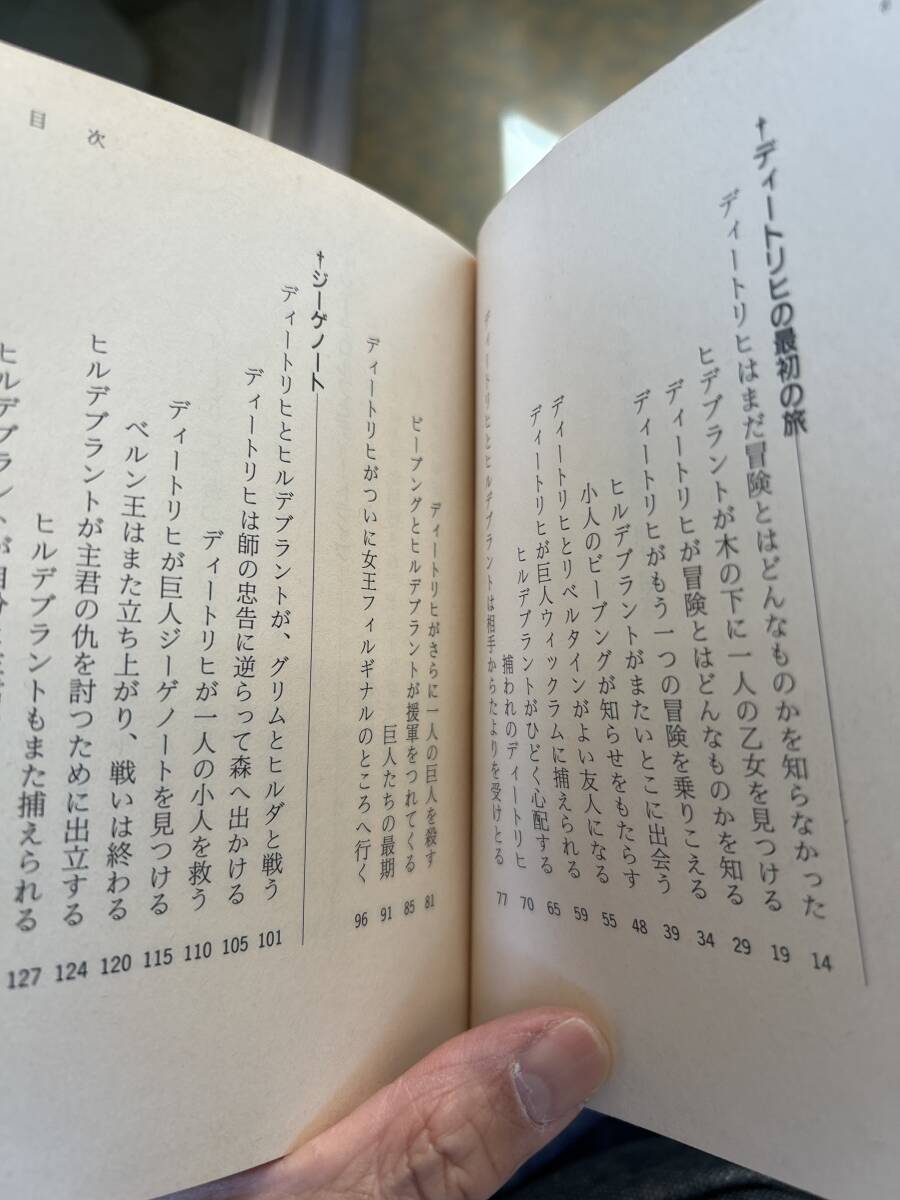 †ディートリヒの最初の旅
ディートリヒはまだ冒険とはどんなものかを知らなかった 14
ヒデブラントが木の下に一人の乙女を見つける 19
ディートリヒが冒険とはどんなものかを知る 29
ディートリヒがもう一つの冒険を乗りこえる 34
ヒルデブラントがまたいとこに出会う 39
小人のビーブングが知らせをもたらす 48
ディートリヒとリベルタインがよい友人になる 55
ディートリヒが巨人ウィックラムに捕えられる 59
ヒルデブラントがひどく心配する 65
捕われのディートリヒ 70
ディートリヒとヒルデブラントは相手からたよりを受けとる 77
目次
ディートリヒがさらに一人の巨人を殺す 81
ビーブングとヒルデブラントが援軍をつれてくる 85
巨人たちの最期 91
ディートリヒがついに女王フィルギナルのところへ行く 96
†ジーゲノート
ディートリヒとヒルデブラントが、グリムとヒルダと戦う 101
ディートリヒは師の忠告に逆らって森へ出かける 105
ディートリヒが一人の小人を救う 110
ディートリヒが巨人ジーゲノートを見つける 115
ベルン王はまた立ち上がり、戦いは終わる 120
ヒルデブラントが主君の仇を討つために出立する 124
ヒルデブラントもまた捕えられる 127